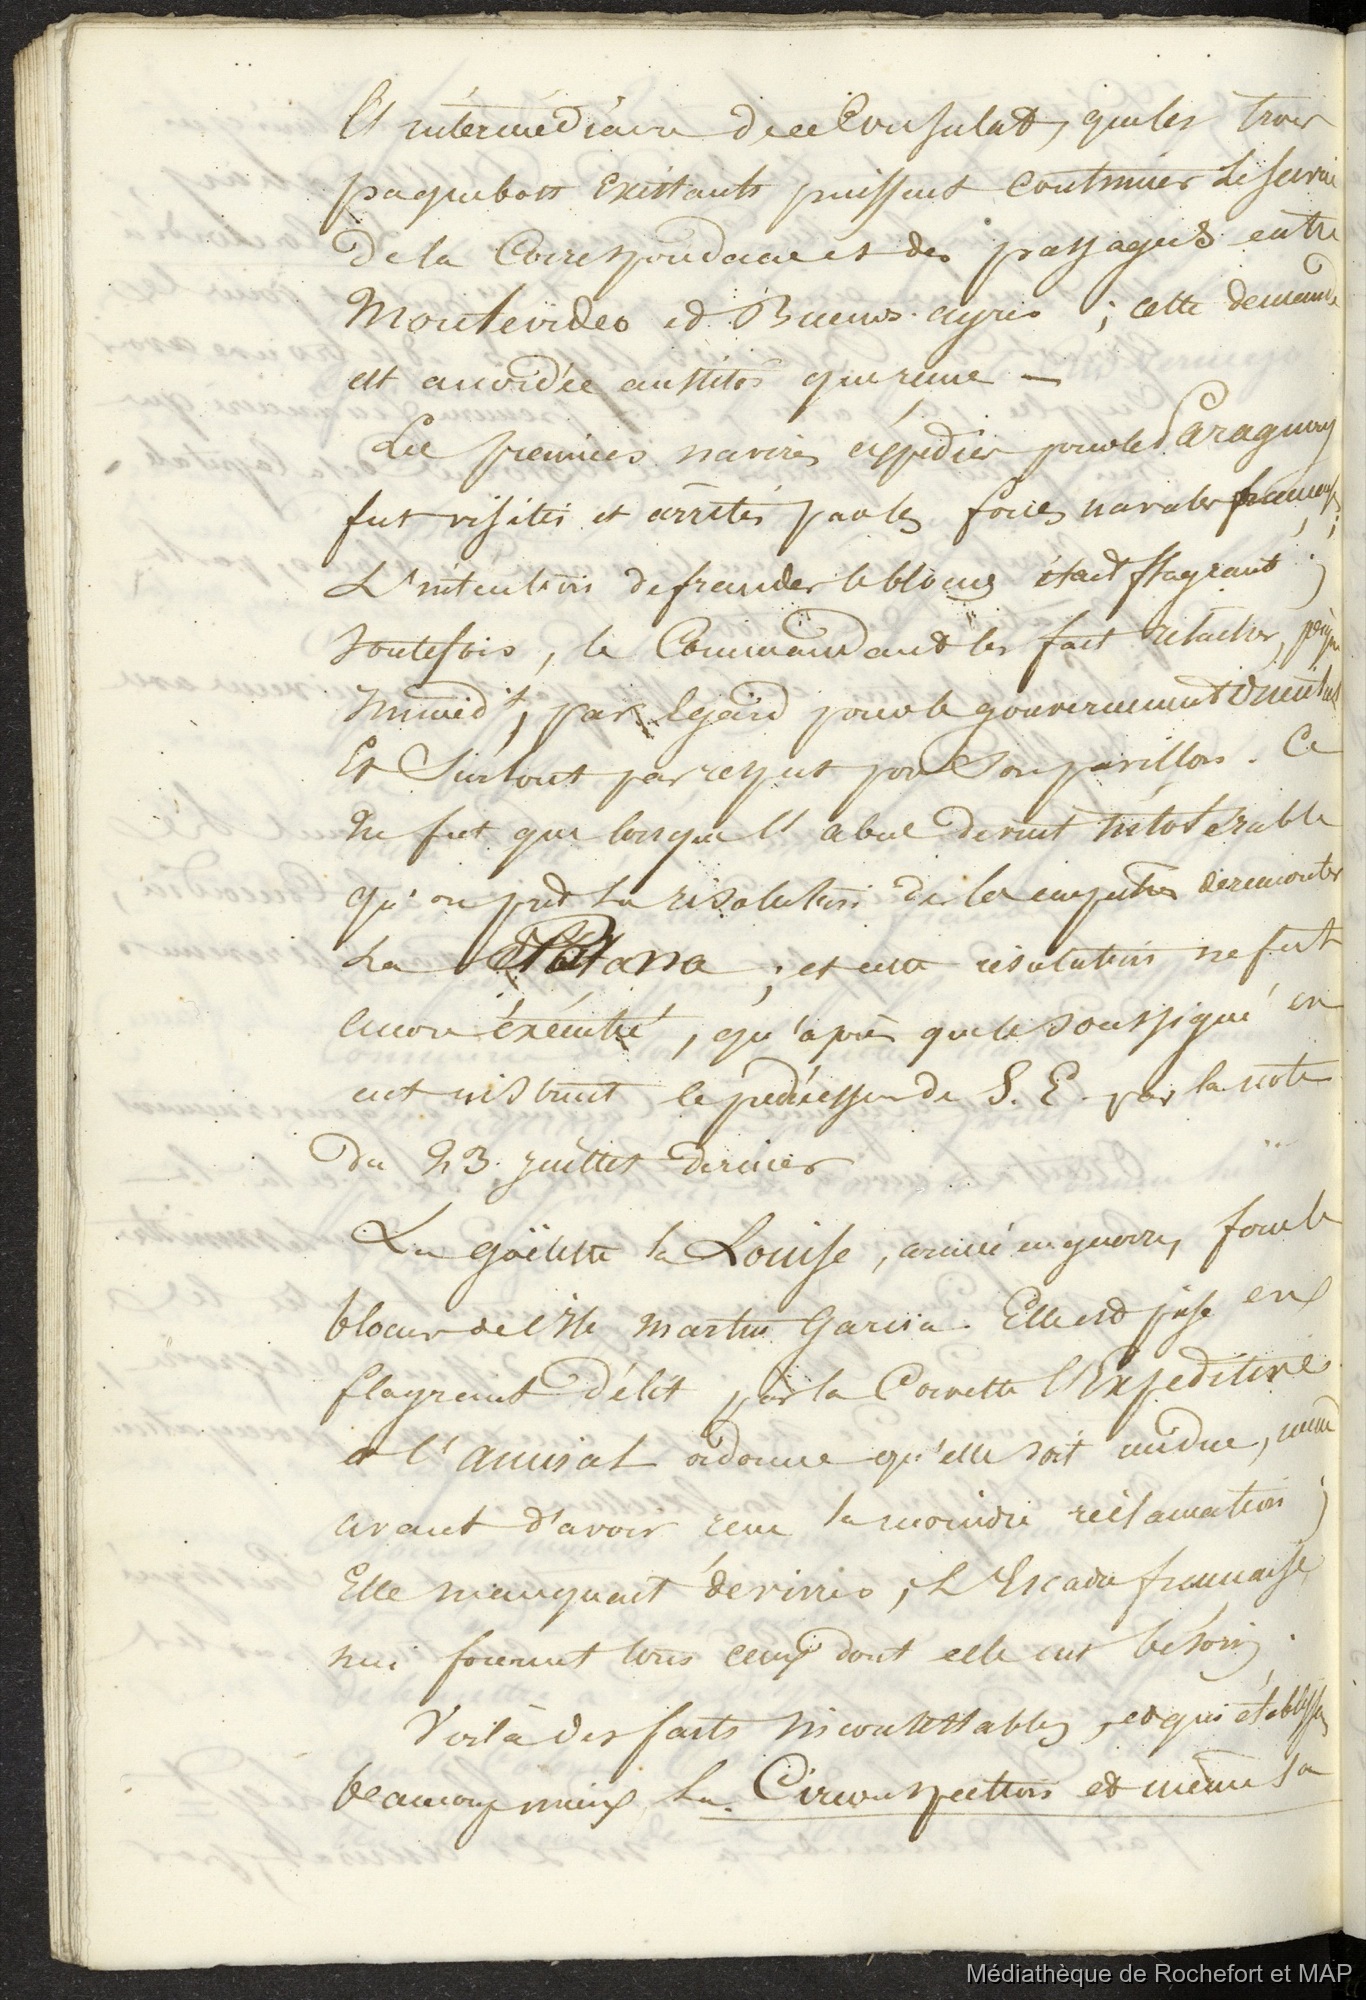 Et intermédiaire de ce Consulat, que les trois
paquebots existants puissent continuer le service
de la Correspondance et des passagers entre
Montevideo et Buenos-ayres ; cette demande
est accordée aussitôt que reçue —
Les premiers navires expédiés pour le Paraguay
fut visités et arrêtés par les forces navales françaises ;
L'intention de frauder le blocus était flagrant ;
toutefois, le Commandant les fait relacher, presque
immédt, par egard pour le gouvernement oriental
Et surtout par respect pour son pavillon. Ce
ne fut que lorsque l'abus devint intolérable
qu'on prit la résolution de les empêcher de remonter
La Parana ; et cette résolution ne fut
encore éxécuté, qu'après que le soussigné en
eut instruit le prédécesseur de S. E. par la note
du 23 juillet dernier
La goëlette la Louise, armé en guerre, force le
blocus de l'Ile Martin Garcia. Elle est prise en
flagrant délit par la Corvette l'Expéditive
et l'amiral ordonne qu'elle soit rendue, même
avant d'avoir reçu la moindre réclamation ;
Elle manquait de vivres, L'Escadre française
lui fournit tous ceux dont elle eut besoin.
Voilà des faits incontestables, et qui établissent
beaucoup mieux la Circonspection et même la
Médiathèque de Rochefort et MAP